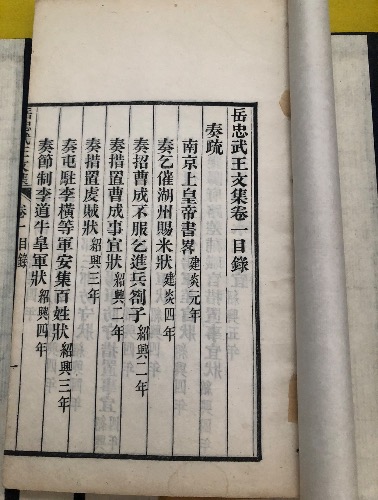 岳忠武王文集卷一目錄
奏疏
南京上皇帝書畧 建炎元年
奏乞催湖州賜米狀 建炎四年
奏招曹成不服乞進兵劄子 紹興二年
奏措置曹成事宜狀 紹興二年
奏措置虔賊狀 紹興三年
奏屯駐李橫等軍安集百姓狀 紹興三年
奏節制李道牛臯軍狀 紹興四年
岳忠武王文集 卷一目錄
一